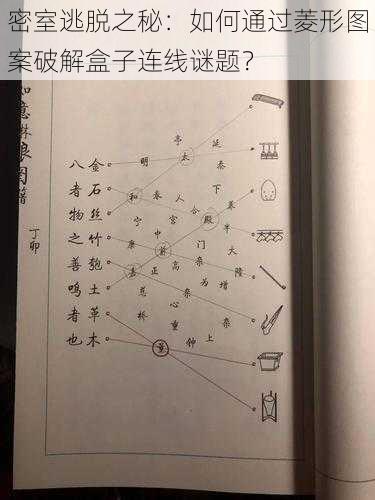 密室逃脱之秘：如何通过菱形图
案破解盒子连线谜题？
如意琳琅图籍
丁卯
金石丝竹匏土革木
八者物之善鸣者也
亭 延
明 太 泰
下
和 春 人
宁 宫 合 殿 半
康 中 前 门 大
嘉 正 高 杂 隆
为 增
心 杂
桥 重 钟 上